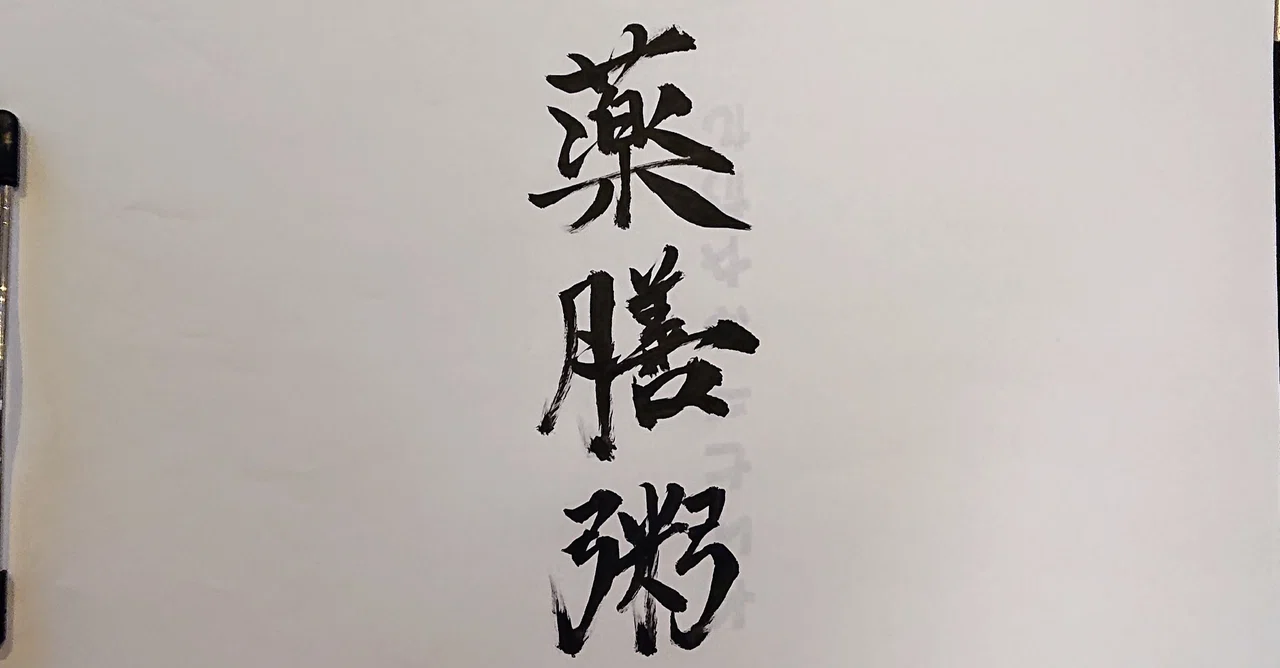 薬膳粥